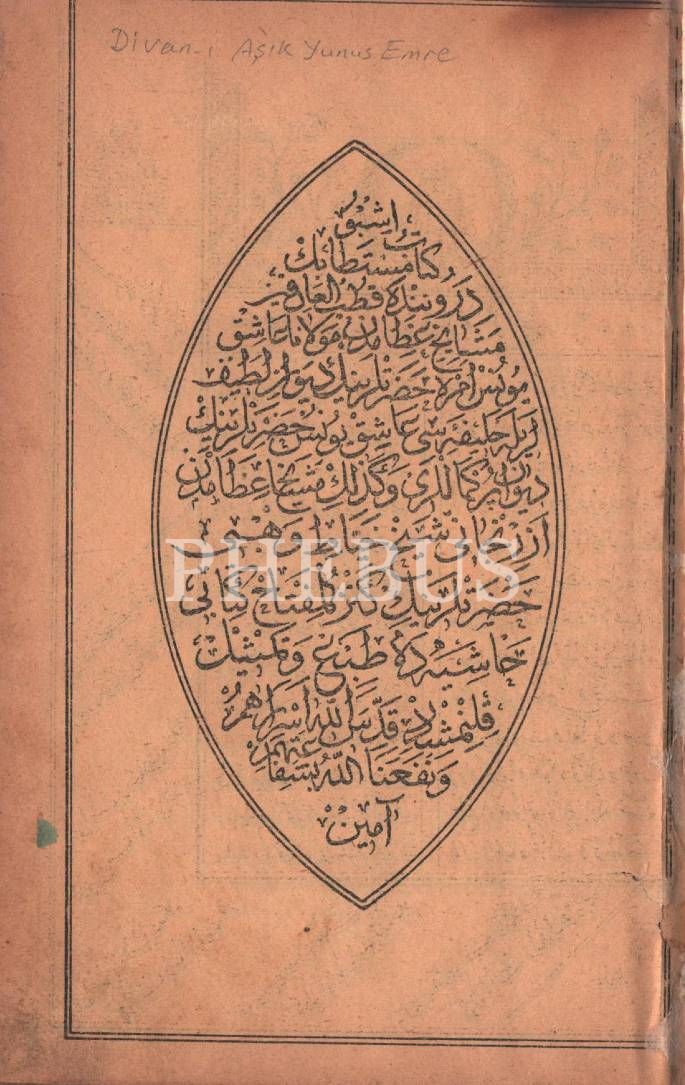 Divan-ı Aşık Yunus Emre
اشبو
كتاب مستطابك
درونندە قطب العارفين
مشايخ عظامدن مولانا عاشق
يونس امره حضرتلرينك ديوان لطيف
لريله خليفه سى عاشق يونس حضرتلرينك
ديوان پركماللرى وكذلك مشايخ عظامدن
شيخ وهبى
حضرتلرينك كنز المفتاح كتابى
حاشيه ده طبع وتمثيل
قلنمشدر قدس الله اسرارهم
ونفعنا الله بشفاعتهم
آمين
PHEBUS